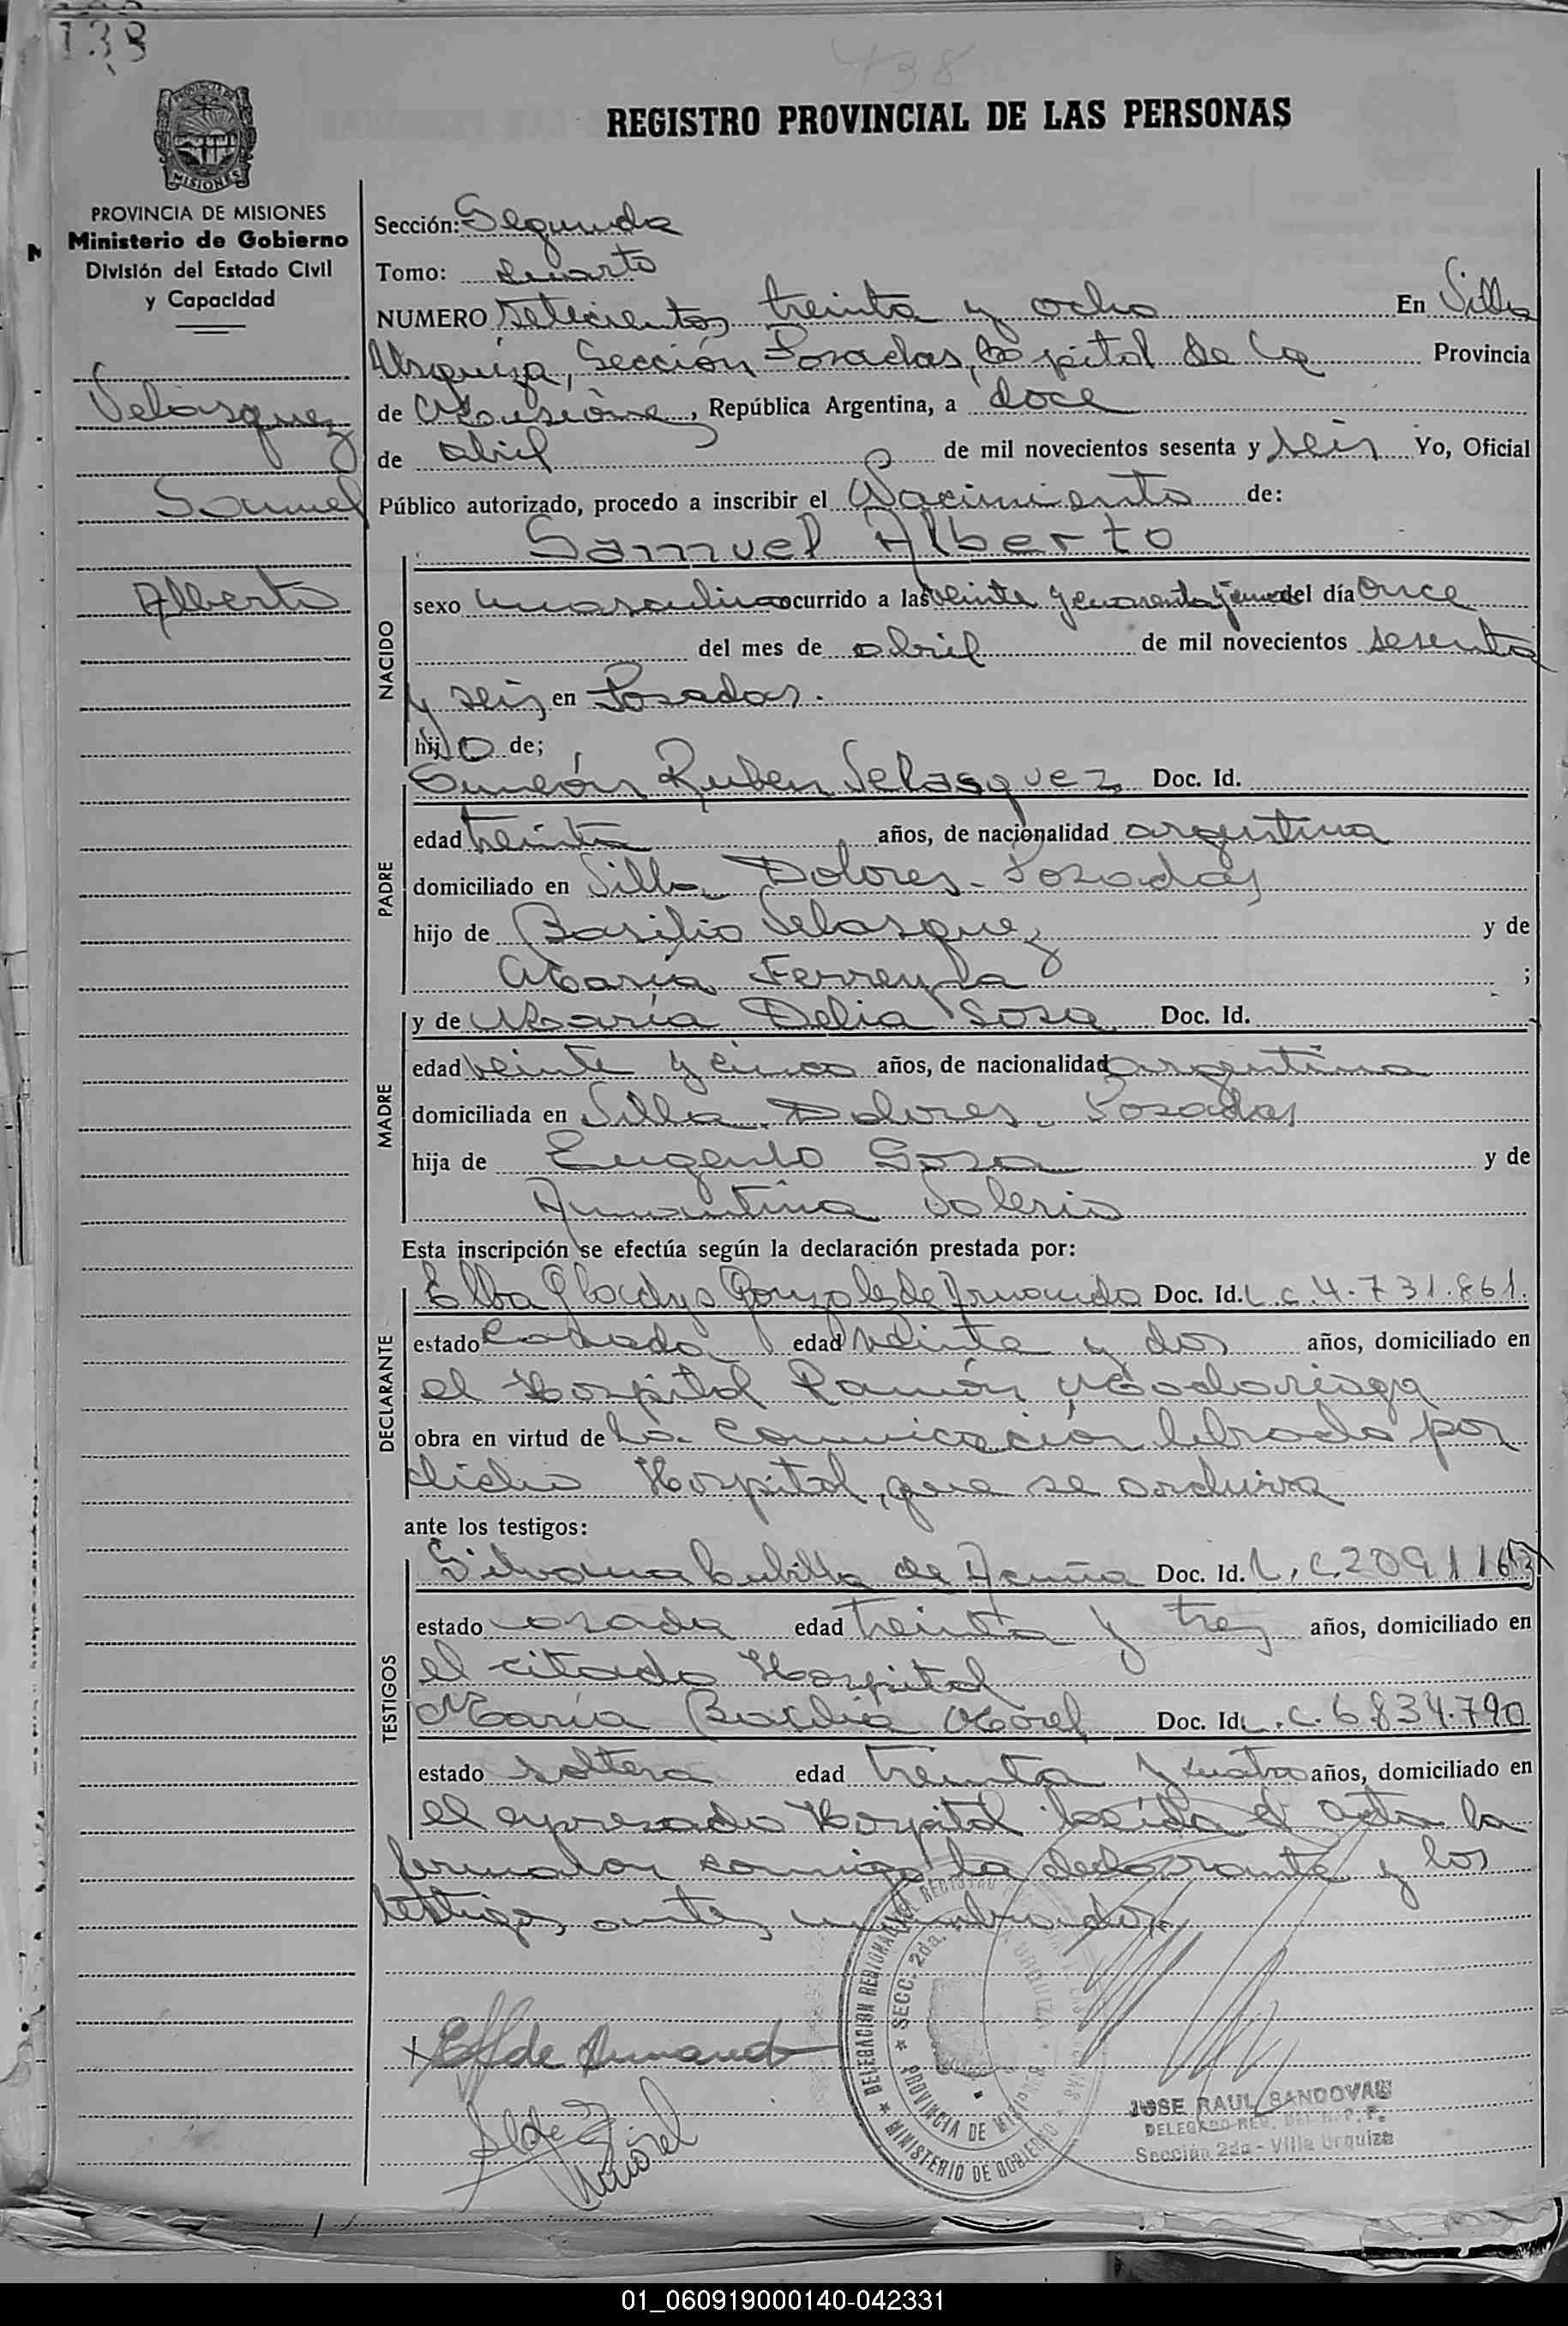 138
738
REGISTRO PROVINCIAL DE LAS PERSONAS
MISIONES
PROVINCIA DE MISIONES
Ministerio de Gobierno
División del Estado Civil
y Capacidad
Velasquez
Samuel
Alberto
Sección: Segunda
Tomo: Cuarto
NUMERO setecientos treinta y ocho En Villa
Urquiza, Sección Posadas, Capital de la Provincia
de Misiones, República Argentina, a doce
de abril de mil novecientos sesenta y seis Yo, Oficial
Público autorizado, procedo a inscribir el Nacimiento de:
Samuel Alberto
NACIDO
sexo masculino ocurrido a las veinte y cuarenta y cinco del día once
del mes de abril de mil novecientos sesenta
y seis en Posadas.
hijo de;
PADRE
Simeón Ruben Velasquez Doc. Id.
edad treinta años, de nacionalidad argentina
domiciliado en Villa Dolores - Posadas
hijo de Basilio Velasquez y de
María Ferreyra ;
MADRE
y de María Delia Sosa Doc. Id.
edad veinte y cinco años, de nacionalidad argentina
domiciliada en Villa Dolores - Posadas
hija de Eugenio Sosa y de
Amantina Valerio
Esta inscripción se efectúa según la declaración prestada por:
DECLARANTE
Elba Gladys Gonzales de Armando Doc. Id. L.C. 4.731.861.
estado casada edad veinte y dos años, domiciliado en
el Hospital Ramón Madariaga
obra en virtud de la comunicación librada por
dicho Hospital, que se archiva
ante los testigos:
TESTIGOS
Silvana Cubilla de Acuña Doc. Id. L.C. 2091163
estado casada edad treinta y tres años, domiciliado en
el citado Hospital
María Morel Doc. Id. L.C. 6834.790
estado soltera edad treinta y cuatro años, domiciliado en
el expresado Hospital leída el acta la
firmaron conmigo la declarante y los
testigos antes nombrados
DELEGACION REGIONAL REGISTRO
SECC. 2da. URQUIZA
PROVINCIA DE MISIONES
MINISTERIO DE GOBIERNO
de Armando
Morel
JOSE RAUL SANDOVAL
DELEGADO REG. DEL R. P. P.
Sección 2da - Villa Urquiza
01_060919000140-042331